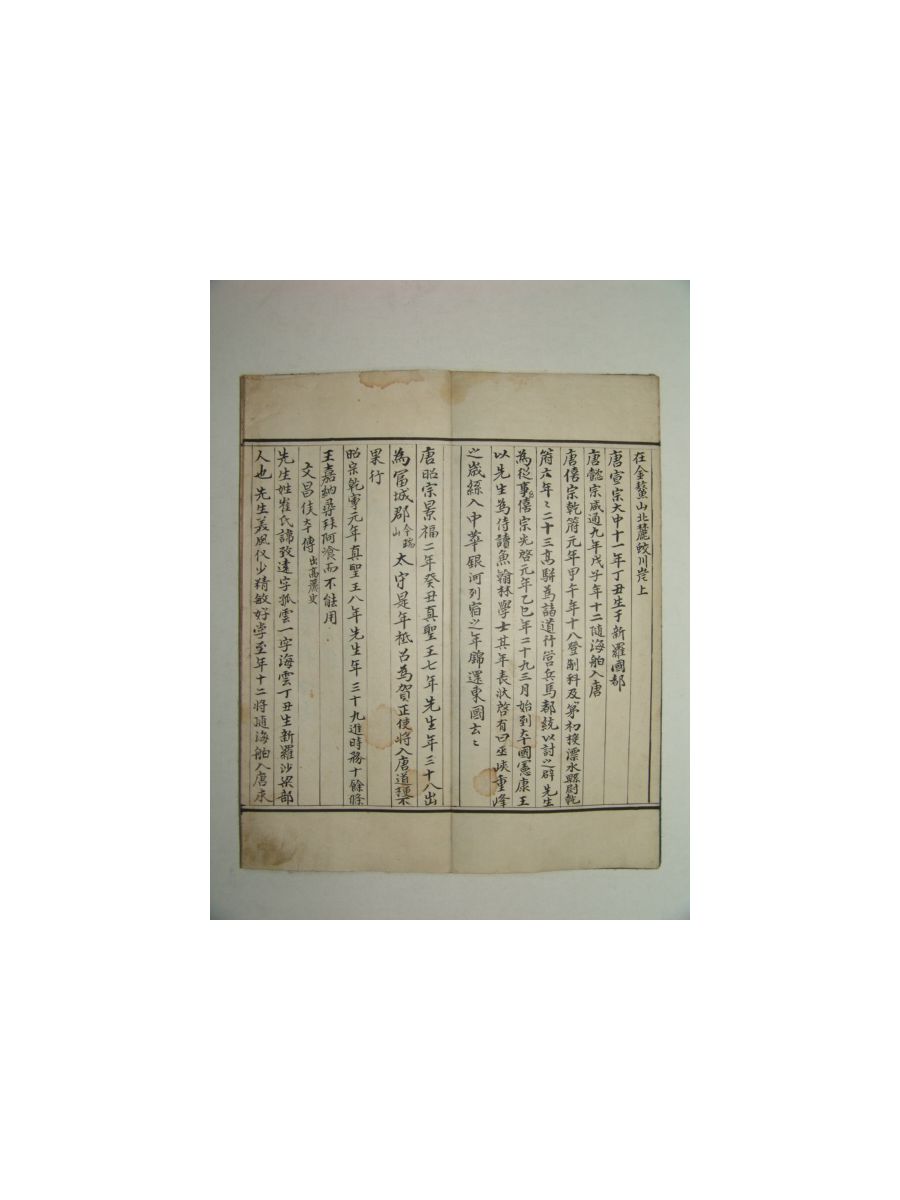 在金鰲山北麓蚊川岸上
唐宣宗大中十一年丁丑生于新羅國都
唐懿宗咸通九年戊子年十二隨海舶入唐
唐僖宗乾符元年甲午年十八登制科及第初授漂水縣尉乾
符六年〻二十三高騈為諸道行營兵馬都統以討之辟先生
為從事僖宗光啓元年乙巳年二十九三月始到本國憲康王
以先生為侍讀魚翰林學士其年表狀啓有曰巫峽重峰
之歲絲入中華銀河列宿之年錦還東國云〻
唐昭宗景福二年癸丑真聖王七年先生年三十八出
為富城郡今瑞山太守是年祗召為賀正使將入唐道梗不
果行
昭宗乾寧元年真聖王八年先生年三十九進時務十餘條
王嘉納尋拜阿飡而不能用
文昌侯本傳出高麗史
先生姓崔氏諱致遠字孤雲一字海雲丁丑生新羅沙梁部
人也先生美風仪少精敏好学至年十二将随海舶入唐求